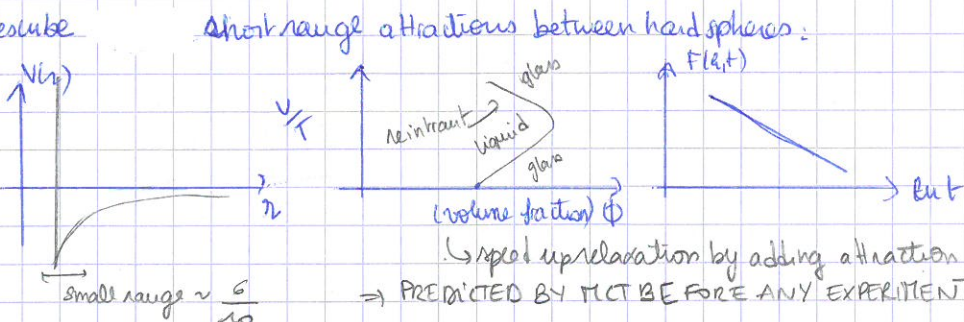 escube short range attractions between hard spheres:
V(r)
V/T
reintrant
glass
liquid
glass
F(q,t)
r
(volume fraction) Φ
ln t
↳ speed up relaxation by adding attraction
small range ~ σ/10
⇒ PREDICTED BY MCT BEFORE ANY EXPERIMENT